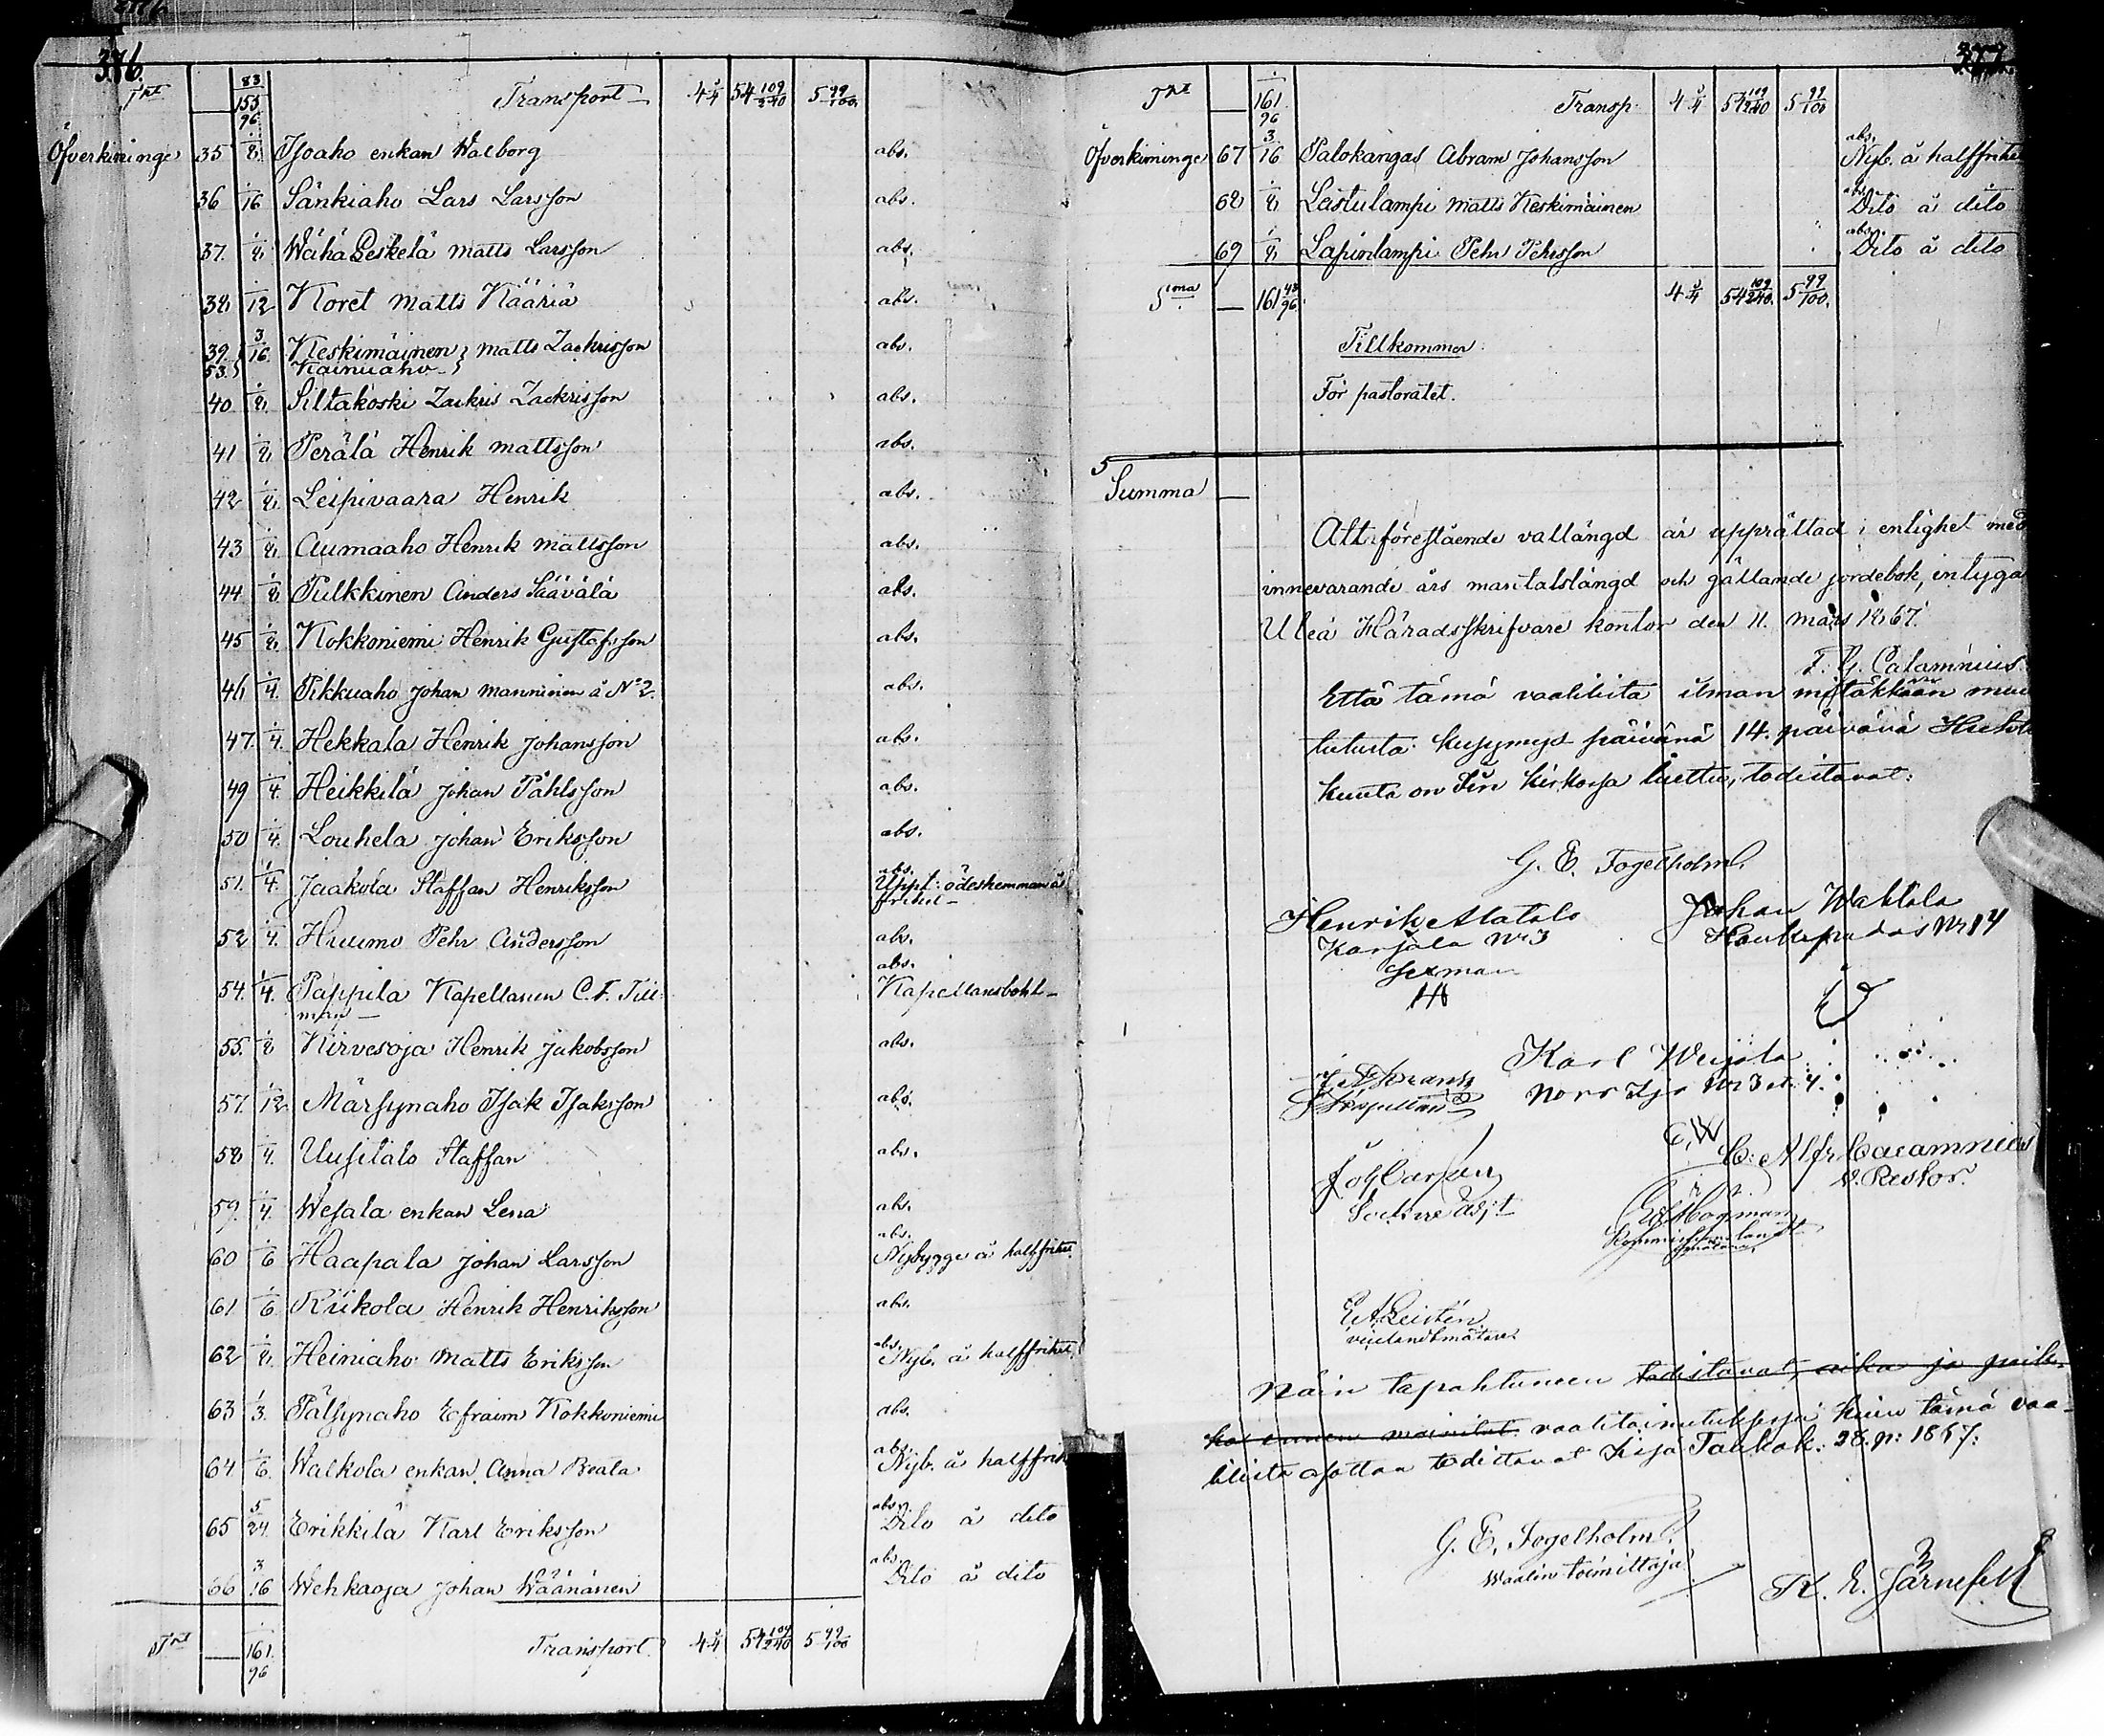 376.
Trt — 83 155/96 Transport 4 3/4 54 109/240 5 99/100
Öfverkiminge 35 1/8 Isoaho enkan Walborg abs.
36 1/16 Sänkiaho Lars Larsson abs.
37. 1/8 Wähä Peskelä Matts Larsson abs.
38 1/12 Koret Matts Kääriä abs.
39. 3/16 Keskimäinen } Matts Zachrisson abs.
53. Kainuaho }
40 1/8 Siltakoski Zackris Zackrisson abs.
41 1/8 Perälä Henrik Mattsson abs.
42 1/8 Leipivaara Henrik abs.
43 1/8 Aumaaho Henrik Mattsson abs.
44 1/8 Pulkkinen Anders Säävälä abs.
45 1/8 Kokkoniemi Henrik Gustafsson abs.
46 1/4 Pikkuaho Johan Manninen å No 2. abs.
47. 1/4. Hekkala Henrik Johansson abs.
49 1/4. Heikkilä Johan Påhlsson abs.
50 1/4. Louhela Johan Eriksson abs.
51. 1/4. Jaakola Staffan Henriksson abs.
Uppt. ödeshemman å
frihet
52 1/4. Huumo Pehr Andersson abs.
54. 1/4. Pappila Kapellanen C. F. Till- abs.
man — Kapellansbohl
55. 1/8 Kirvesoja Henrik Jakobsson abs.
57. 1/12 Märsynaho Isak Isaksson abs.
58 1/4. Uusitalo Staffan abs.
59. 1/4. Wesala enkan Lena abs.
60 1/6 Haapala Johan Larsson abs.
Nybygge å halffrihet
61 1/6. Riikola Henrik Henriksson abs.
62 1/8. Heiniaho Matts Eriksson abs. Nyb. å halffrihet.
63 1/3. Pälsynaho Efraim Kokkoniemi abs.
64 1/6. Walkola enkan Anna Beata abs. Nyb. å halffrih
65 5/24. Erikkilä Karl Eriksson abs. Dito å dito
66 3/16 Wehkaoja Johan Wäänänen abs. Dito å dito
Trt — 161/96 Transport. 4 3/4 54 109/240 5 99/100
377.
Trt — 161/96 Transp. 4 3/4 54 109/240 5 99/100
Öfverkiminge 67 3/16 Palokangas Abram Johansson abs. Nyb. å halffrihe
68 1/8 Lastulampi Matts Keskimäinen abs. Dito å dito
69 1/8 Lapinlampi Pehr Pehrsson abs. Dito å dito
Sma — 161 48/96 4 3/4 54 109/240. 5 99/100.
Tillkommer
För pastoratet.
Summa —
Att föreslående vallängd är upprättad i enlighet med
innevarande års mantalslängd och gällande jordebok, intyga
Uleå Häradsskrifvare kontor den 11. Mars 1867.
F. G. Calamnius
Että tämä vaalilista ilman mitäkkään muu
tutusta kysymys päivänä 14. päivänä Huhti
kuuta on Iin kirkossa luettu, todistavat:
G. E. Fogelholm.
Henrik Alatalo Johan Wattala
Karjala No 3 Haukipudas No 14
Sexman
HA
Karl Weijola
Nors Ijo No 3 et 4.
Kapellan
C. W
C. Alfr. Calamnius
V. Rektor.
Sockne Adjt
Kommissionslandt
mätare
E. A. Leistén
vicelandtmätare
Näin tapahtuneen todistavat, aika ja paik-
ka ennen mainitut. vaalitoimituksessa kuin tämä vaa-
lilista osottaa todistavat Iissä Toukok. 28. p: 1867.
G. E. Fogelholm
Waalin toimittaja.
K. E. Järnefelt